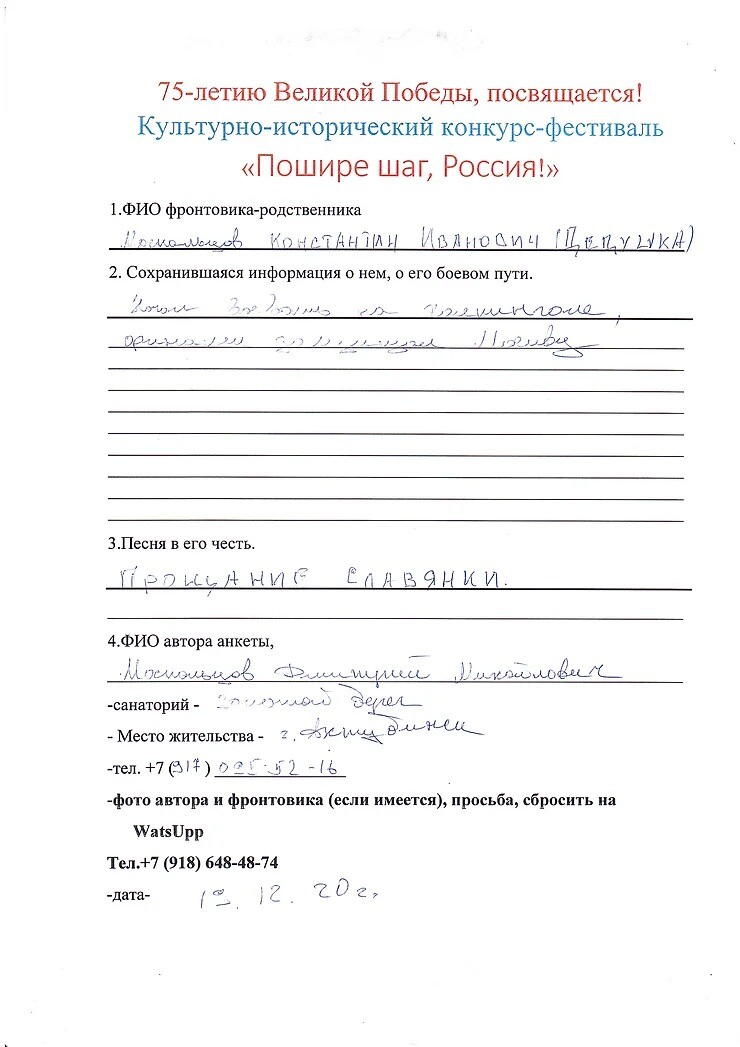 75-летию Великой Победы, посвящается!
Культурно-исторический конкурс-фестиваль
«Пошире шаг, Россия!»
1.ФИО фронтовика-родственника
Москальцов КОНСТАНТИН ИВАНОВИЧ (ДЕДУШКА)
2. Сохранившаяся информация о нем, о его боевом пути.
Начал воевать на Халхинголе,
Москву
3.Песня в его честь.
ПРОЩАНИЕ СЛАВЯНКИ.
4.ФИО автора анкеты,
Москальцов Дмитрий Михайлович
-санаторий - Золотой берег
- Место жительства - г. Ахтубинск
-тел. +7 (917) 095-52-16
-фото автора и фронтовика (если имеется), просьба, сбросить на
WatsUpp
Тел.+7 (918) 648-48-74
-дата- 19.12.20г.